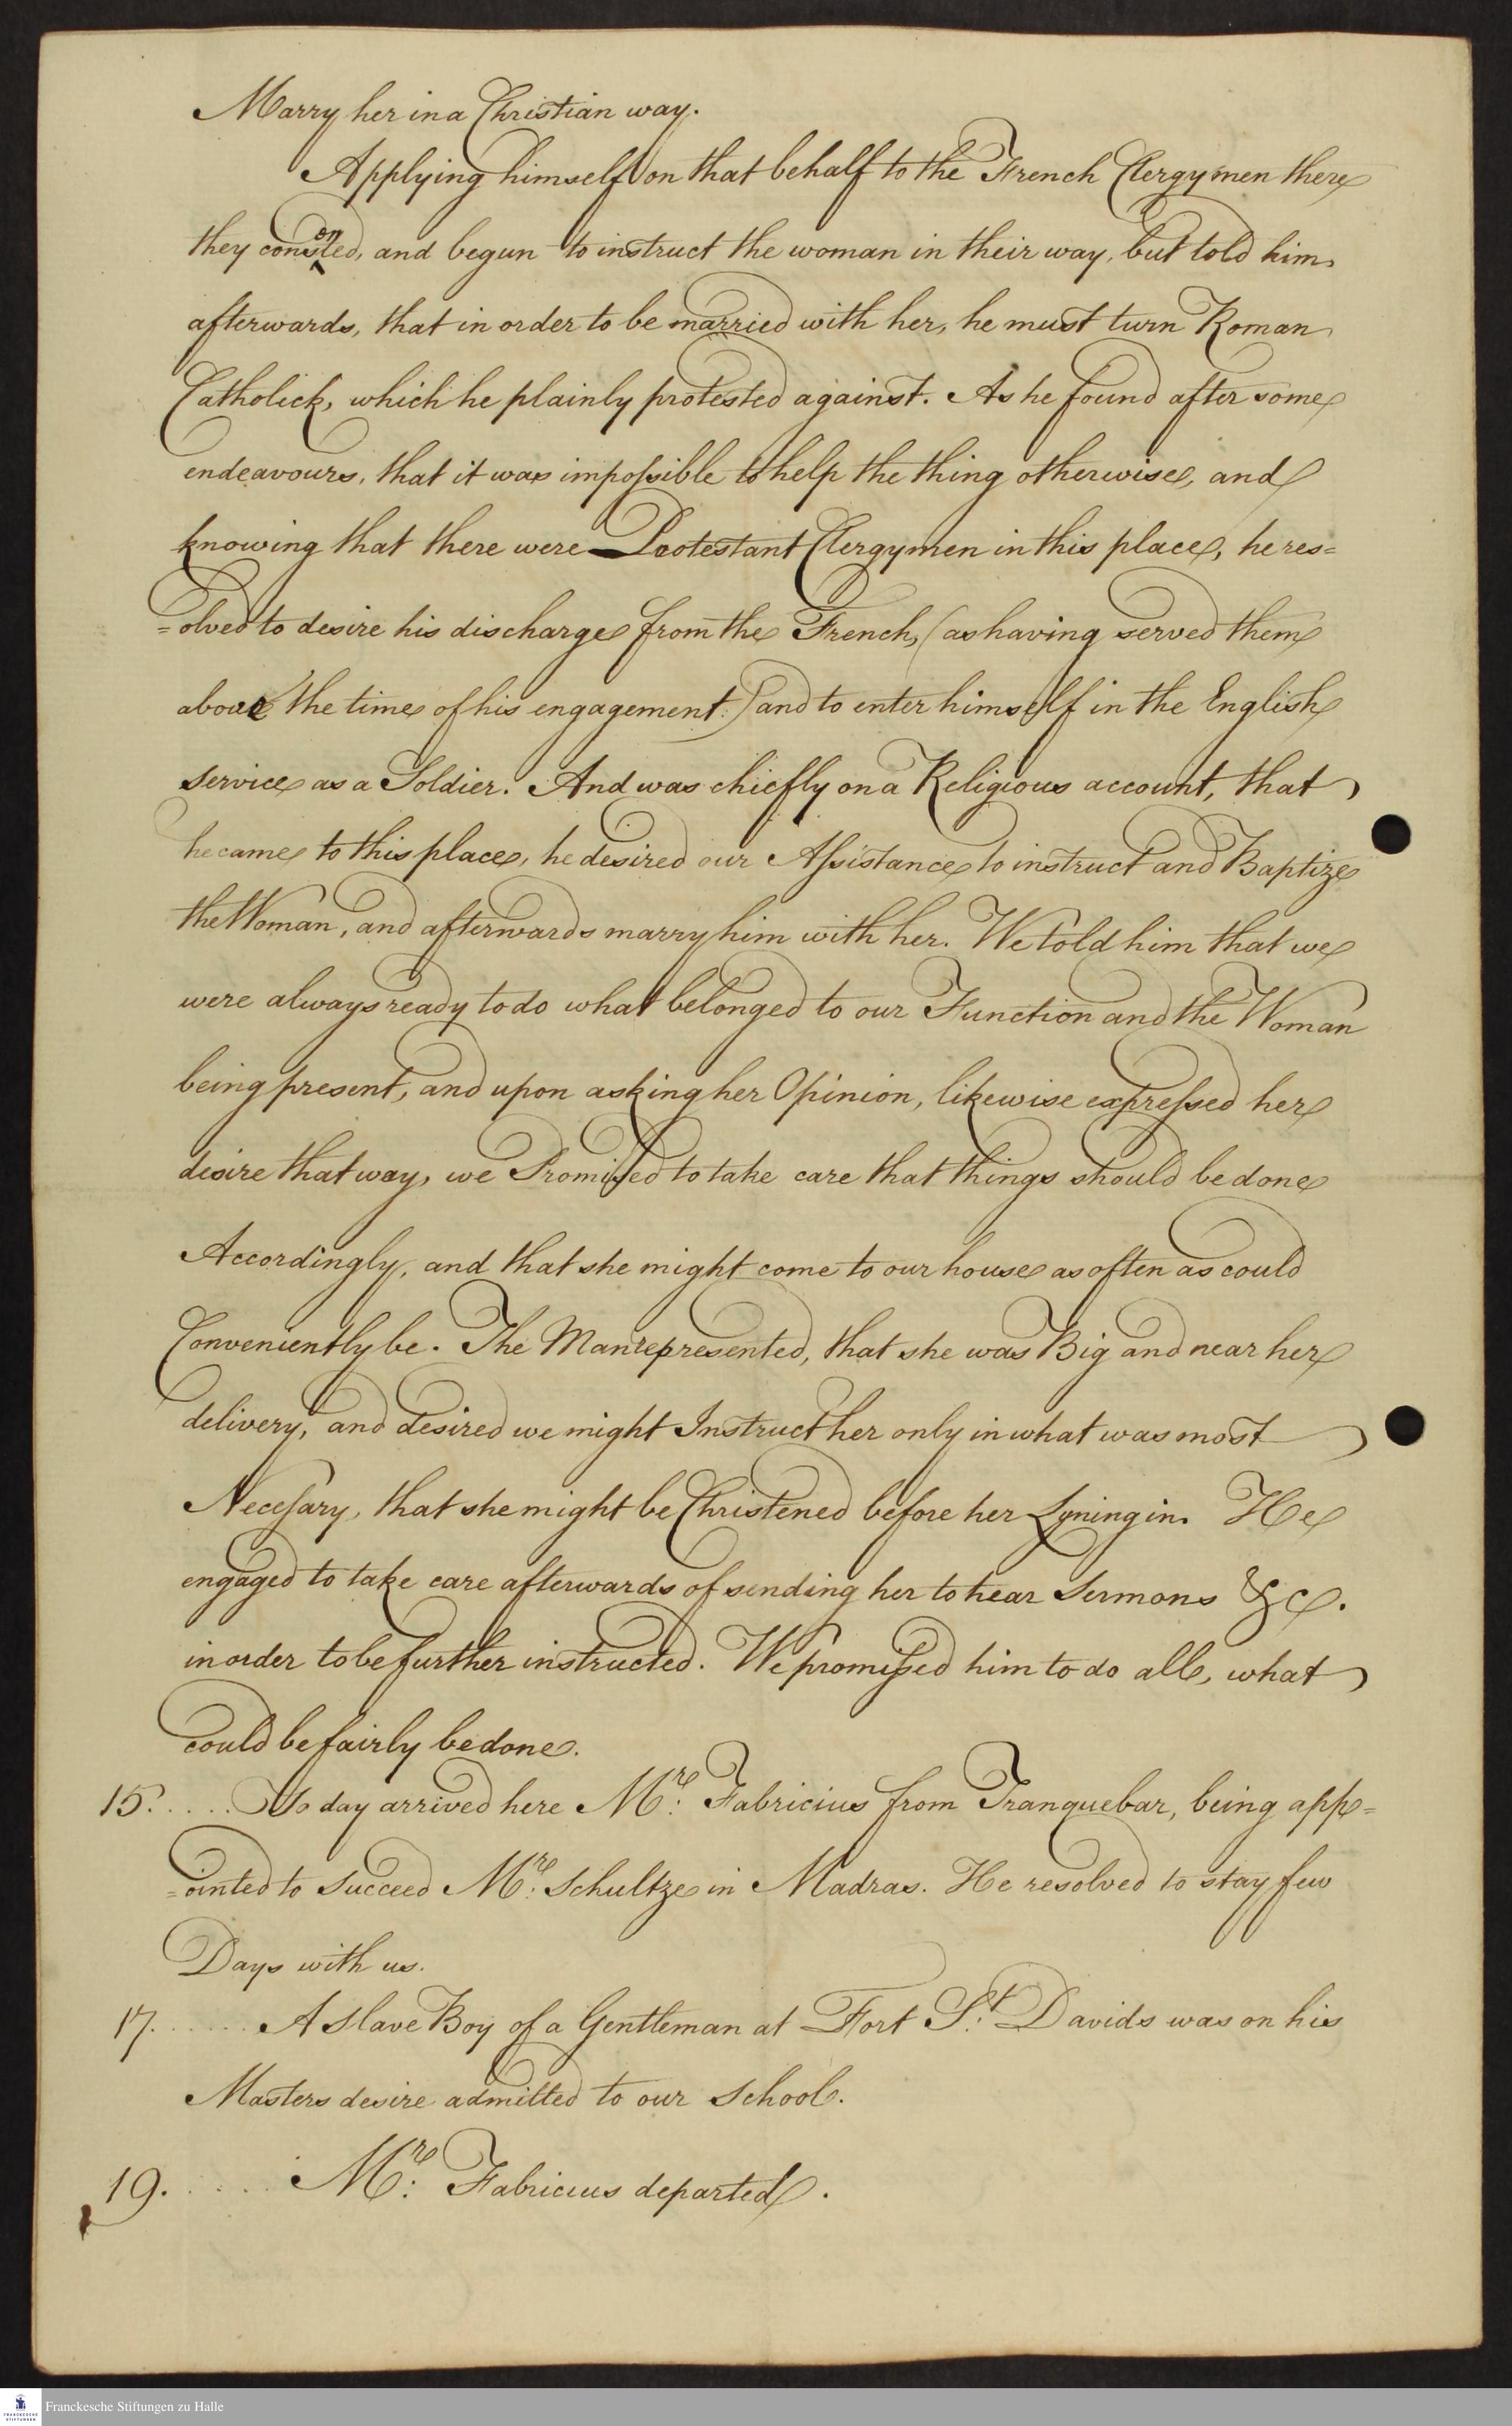 Marry her in a Christian way.
Applying himself on that behalf to the French Clergymen there
they consented, and begun to instruct the woman in their way, but told him
afterwards, that in order to be married with her, he must turn Roman
Catholick, which he plainly protested against. As he found after some
endeavours, that it was impossible to help the thing otherwise, and
knowing that there were Protestant Clergymen in this place, he res=
=olved to desire his discharge from the French, (as having served them
above the time of his engagement:) and to enter himself in the English
Service as a Soldier. And was chiefly on a Religious account, that
he came to this place, he desired our Assistance to instruct and Baptize
the Woman, and afterwards marry him with her. We told him that we
were always ready to do what belonged to our Function and the Woman
being present, and upon asking her Opinion, likewise expressed her
desire that way, we Promised to take care that things should be done
Accordingly, and that she might come to our house as often as could
Conveniently be. The Man represented, that she was Big and near her
delivery, and desired we might Instruct her only in what was most
Necessary, that she might be Christened before her Lyning in. He
engaged to take care afterwards of sending her to hear Sermons &c.
in order to be further instructed. We promissed him to do all, what
could be fairly be done.
15. .... To day arrived here Mr: Fabricius from Tranquebar, being app=
=ointed to Succeed Mr: Schultze in Madras. He resolved to stay few
Days with us.
17. ..... A Slave Boy of a Gentleman at Fort St: Davids was on his
Masters desire admitted to our School.
19. ..... Mr: Fabricius departed.
Franckesche Stiftungen zu Halle